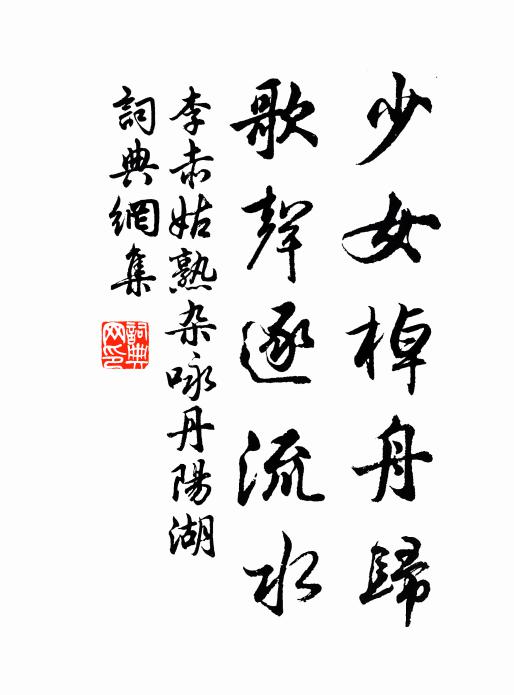 少女棹舟歸
歌聲逐流水
李赤姑熟杂咏丹陽湖
詞典網集
詞典網印